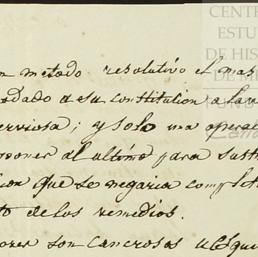 CENT
ESTU
DE HIS
DE M
n metodo resolutivo el mas
dado a su constitucion a la
erviosa; y solo una opera
poner al ultimo para sust
ion que se negaria complet
to de los remedios.
ores son cancrosos